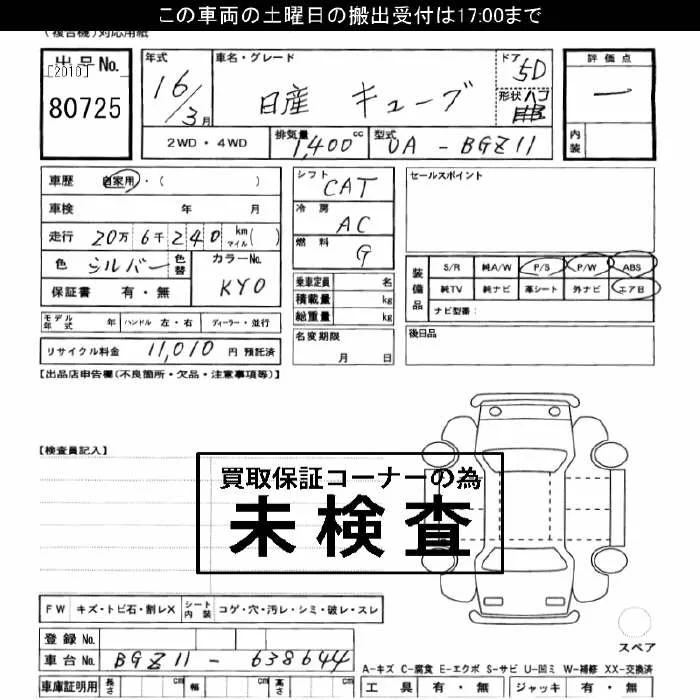 この車両の土曜日の搬出受付は17:00まで
(複合機)対応用紙
出品No.
[2010]
80725
年式
16/3月
車名・グレード
日産 キューブ
ドア
5D
形状 ハコ
評価点
一
内装
2WD・4WD
排気量
1,400cc
型式
UA-BGZ11
車歴 自家用・( )
車検 年 月
走行 20万6千240 km マイル( )
色 シルバー 色替
カラーNo.
KY0
保証書 有・無
モデル年式 年 ハンドル 左・右 ディーラー・並行
リサイクル料金 11,010 円 預託済
シフト
CAT
冷房
AC
燃料
G
乗車定員 名
積載量 kg
総重量 kg
名変期限
月 日
セールスポイント
装備品
S/R 純A/W P/S P/W ABS
純TV 純ナビ 革シート 外ナビ エアB
ナビ型番:
後日品
【出品店申告欄(不良箇所・欠品・注意事項等)】
【検査員記入】
買取保証コーナーの為
未検査
FW キズ・トビ石・割レX シート内装 コゲ・穴・汚レ・シミ・破レ・スレ
登録No.
車台No. BGZ11-638644
スペア
A-キズ C-腐食 E-エクボ S-サビ U-凹ミ W-補修 XX-交換済
車庫証明用 長さ cm 幅 cm 高さ cm
工具 有・無 ジャッキ 有・無